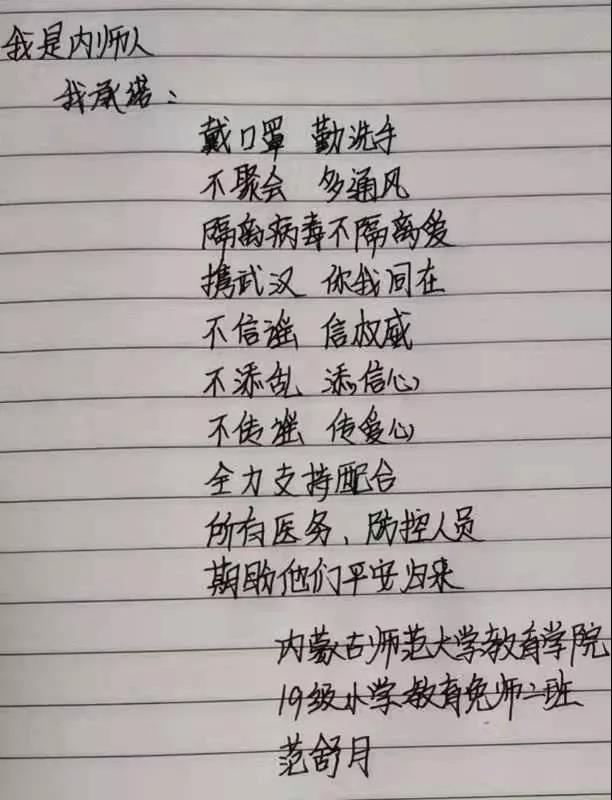 我是内师人
我承诺：
戴口罩 勤洗手
不聚会 多通风
隔离病毒不隔离爱
携武汉 你我同在
不信谣 信权威
不添乱 添信心
不传谣 传爱心
全力支持配合
所有医务、防控人员
期盼他们平安归来
内蒙古师范大学教育学院
19级小学教育免师二班
范舒月